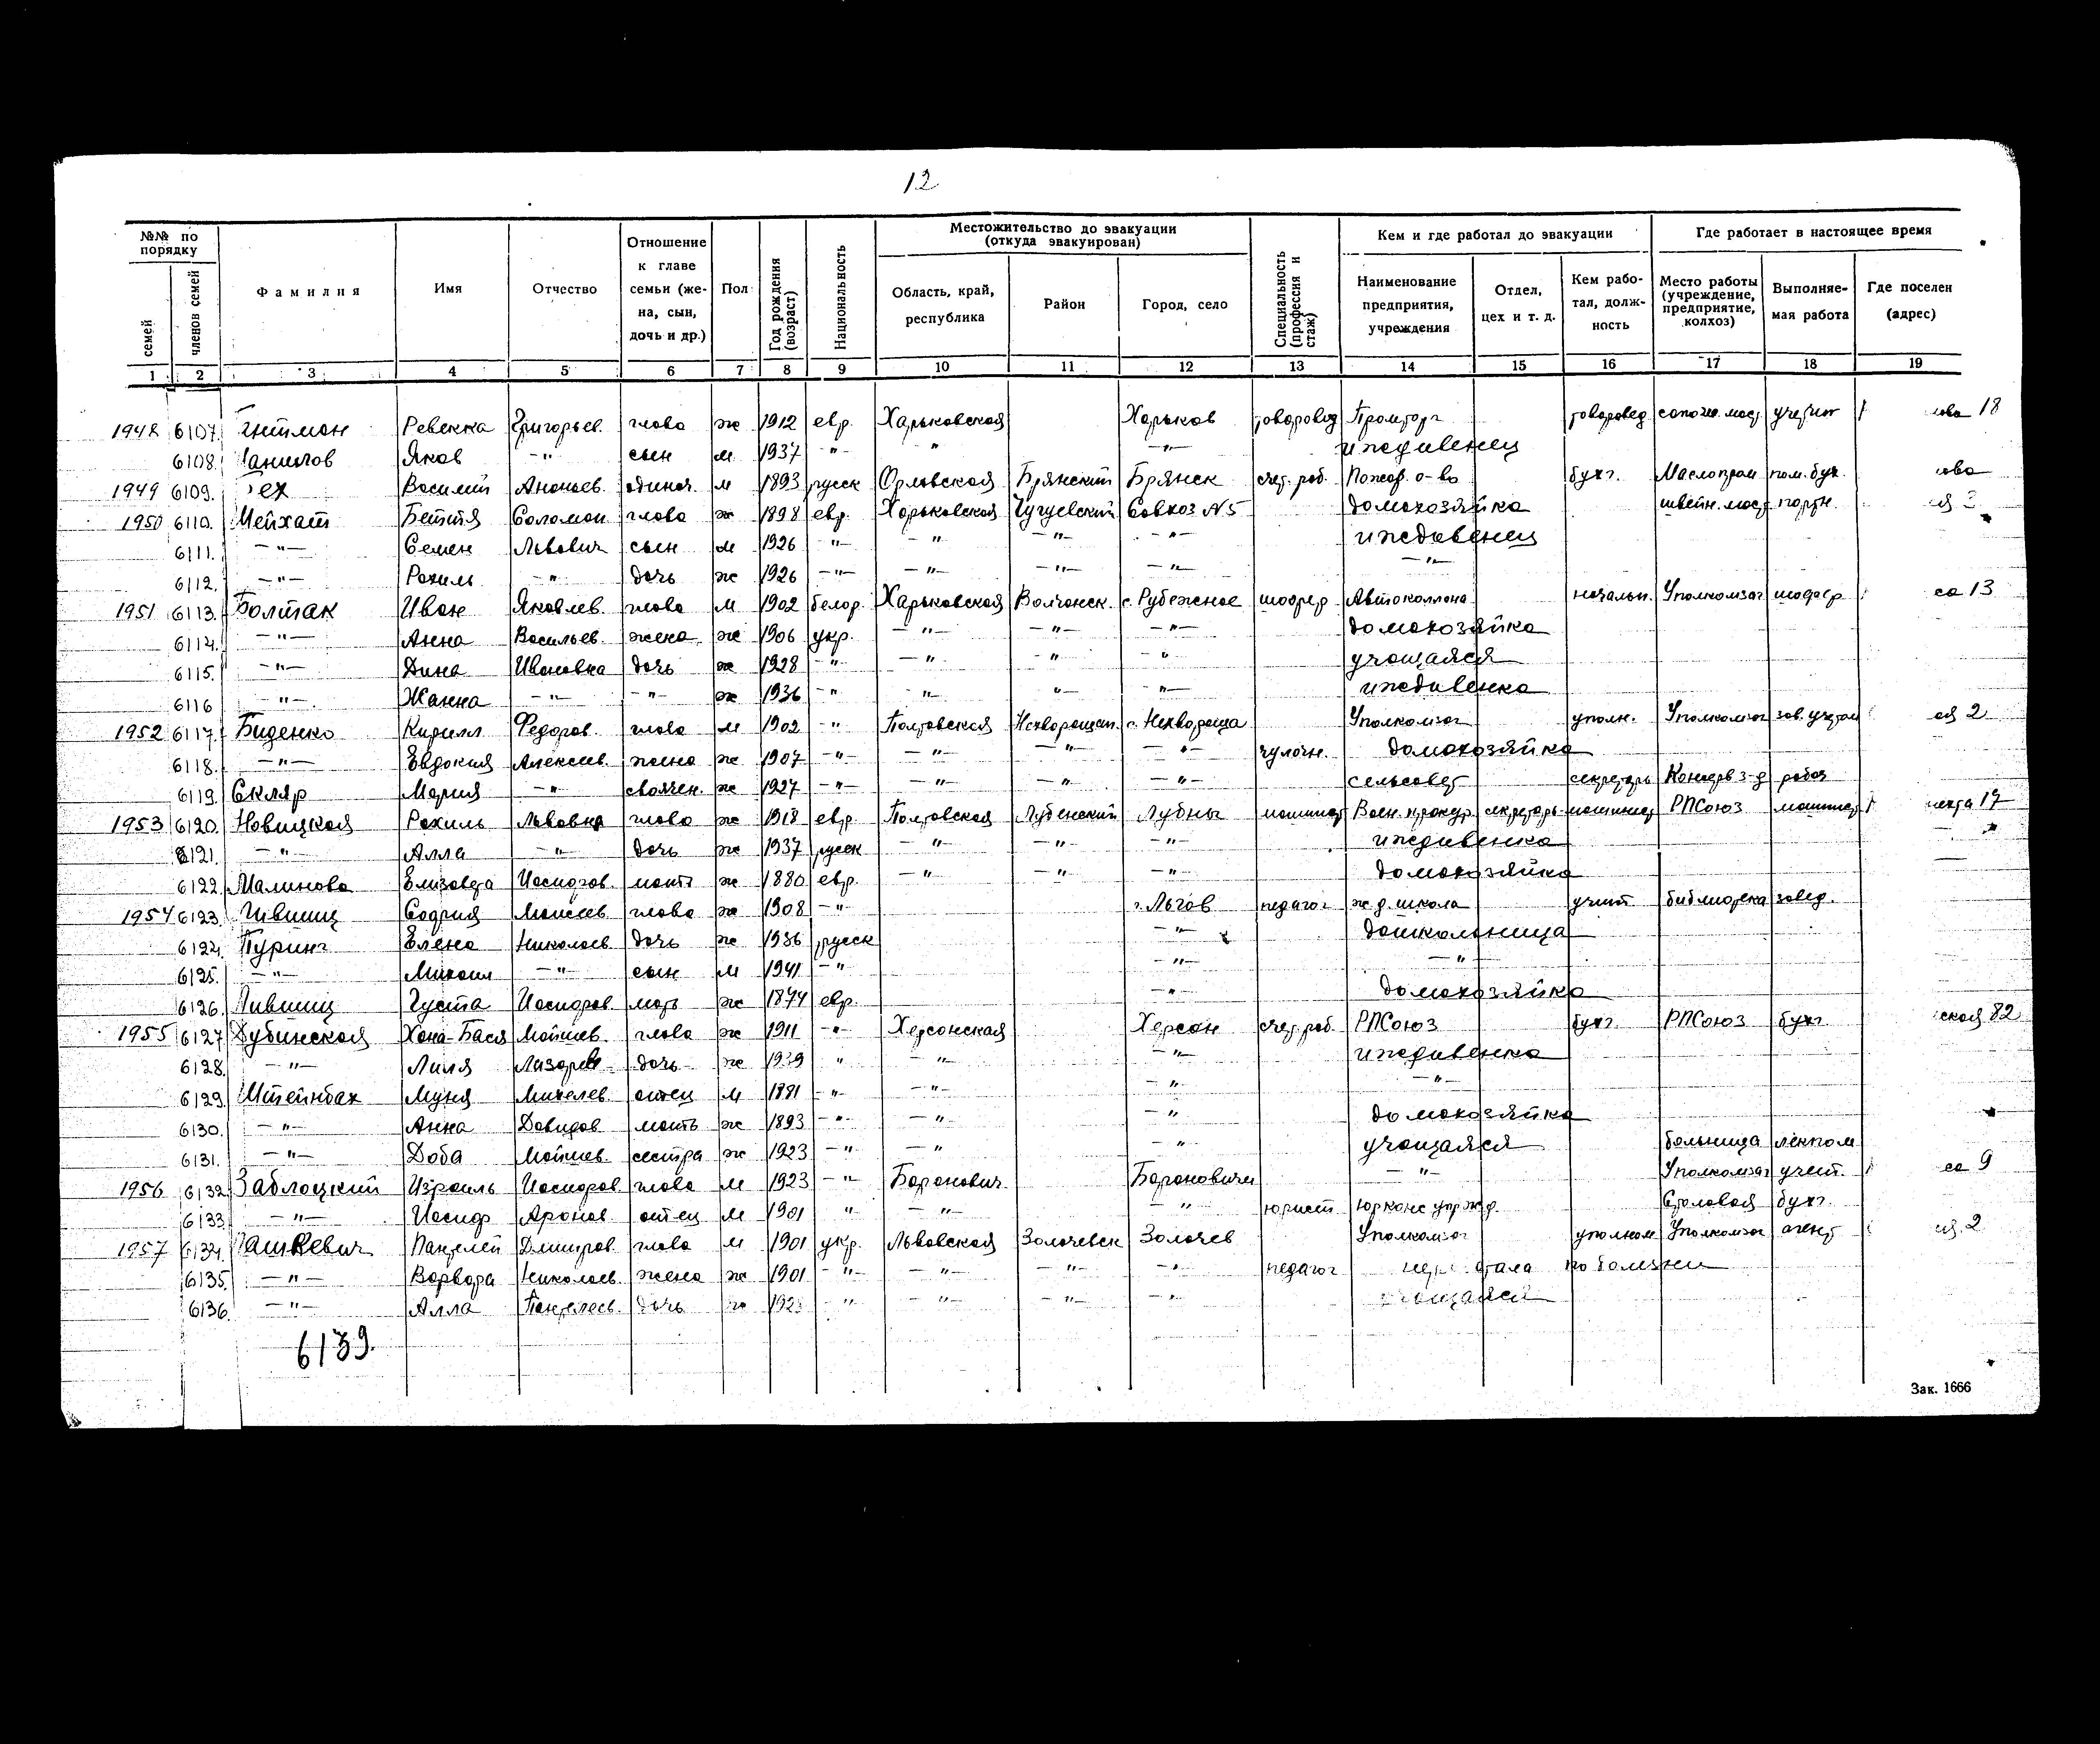 12
№№ по порядку Фамилия Имя Отчество Отношение к главе семьи (жена, сын, дочь и др.) Пол Год рождения (возраст) Национальность Местожительство до эвакуации (откуда эвакуирован) Специальность (профессия и стаж) Кем и где работал до эвакуации Где работает в настоящее время
семей членов семей Область, край, республика Район Город, село Наименование предприятия, учреждения Отдел, цех и т. д. Кем работал, должность Место работы (учреждение, предприятие, колхоз) Выполняемая работа Где поселен (адрес)
1 2 3 4 5 6 7 8 9 10 11 12 13 14 15 16 17 18 19
1948 6107 Ревекка Григорьев. глава ж 1912 евр. Харьковская Харьков товаровед Промторг товаровед сапожн. маст. 18
6108. Яков —"— сын м 1937 —"— " —"— иждивенец
1949 6109. Василий Ананьев. одиноч. м 1893 русск Орловская Брянский Брянск счет. раб. Пожар. о-во бухг. Маслопром пом. бух.
1950 6110. Мейхат Бетя Соломон. глава ж 1898 евр. Харьковская Чугуевский Совхоз №5 домохозяйка швейн. маст. портн.
6111. —"— Семен Львович сын м 1926 —"— —"— —"— —"— иждивенец
6112. —"— Рахиль —"— дочь ж 1926 —"— —"— —"— —"— —"—
1951 6113. Болтак Иван Яковлев. глава м 1902 белор. Харьковская Волчанск. с. Рубежное шофер Автоколлона начальн. Уполкомзаг шофер 13
6114. —"— Анна Васильев. жена ж 1906 укр. —"— —"— —"— домохозяйка
6115. —"— Дина Ивановна дочь ж 1928 —"— —"— —"— —"— учащаяся
6116 —"— Жанна —"— —"— ж 1936 —"— —"— —"— —"— иждивенка
1952 6117. Биденко Кирилл Федоров. глава м 1902 —"— Полтавская Нехворощан. с. Нехвороща Уполкомзаг уполн. Уполкомзаг 2
6118. —"— Евдокия Алексеев. жена ж 1907 —"— —"— —"— —"— чулочн. домохозяйка
6119. Скляр Мария —"— свояч. ж 1927 —"— —"— —"— —"— сельсовет секретарь Консерв з-д рабоч
1953 6120. Новицкая Рахиль Львовна глава ж 1918 евр. Полтавская Лубенский Лубны машинист Воен. прокур. секретарь машинист РПСоюз машинист 17
6121. —"— Алла —"— дочь ж 1937 русск —"— —"— —"— иждивенка
6122. Малинова Елизавета Иосифов. мать ж 1880 евр. —"— —"— —"— домохозяйка
1954 6123. Лившиц София Моисеев. глава ж 1908 —"— г. Льгов педагог ж.д. школа учит библиотека завед.
6124. Пуринг Елена Николаев. дочь ж 1936 русск —"— дошкольница
6125. —"— Михаил —"— сын м 1941 —"— —"— —"—
6126. Лившиц Густа Иосифов. мать ж 1874 евр. —"— домохозяйка
1955 6127 Дубинская Хана-Бася Мойшев. глава ж 1911 —"— Херсонская Херсон счет. раб. РПСоюз бухг. РПСоюз бухг. ская 82
6128. —"— Лиля Лазарев. дочь ж 1939 " —"— —"— иждивенка
6129. Штейнбах Муня Михелев. отец м 1881 —"— —"— —"— —"—
6130. —"— Анна Давидов. мать ж 1893 —"— —"— —"— домохозяйка
6131. —"— Доба Мойшев. сестра ж 1923 —"— —"— —"— учащаяся больница лекпом
1956 6132. Заблоцкий Израиль Иосифов. глава м 1923 —"— Баранович. Барановичи —"— Уполкомзаг учет. 9
6133 —"— Иосиф Аронов. отец м 1901 " —"— —"— юрист Юрконс упр ж.д. Столовая бухг.
1957 6134. Пашкевич Пантелей Дмитров. глава м 1901 укр. Львовская Золочевск Золочев Уполкомзаг уполком Уполкомзаг агент 2
6135. —"— Варвара Николаев. жена ж 1901 —"— —"— —"— —"— педагог по болезни
6136. —"— Алла Пантелеев. дочь —"— —"— —"— —"—
6139.
Зак. 1666